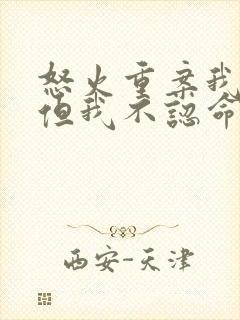 怒火重棄我
但我不認命
西安-天津